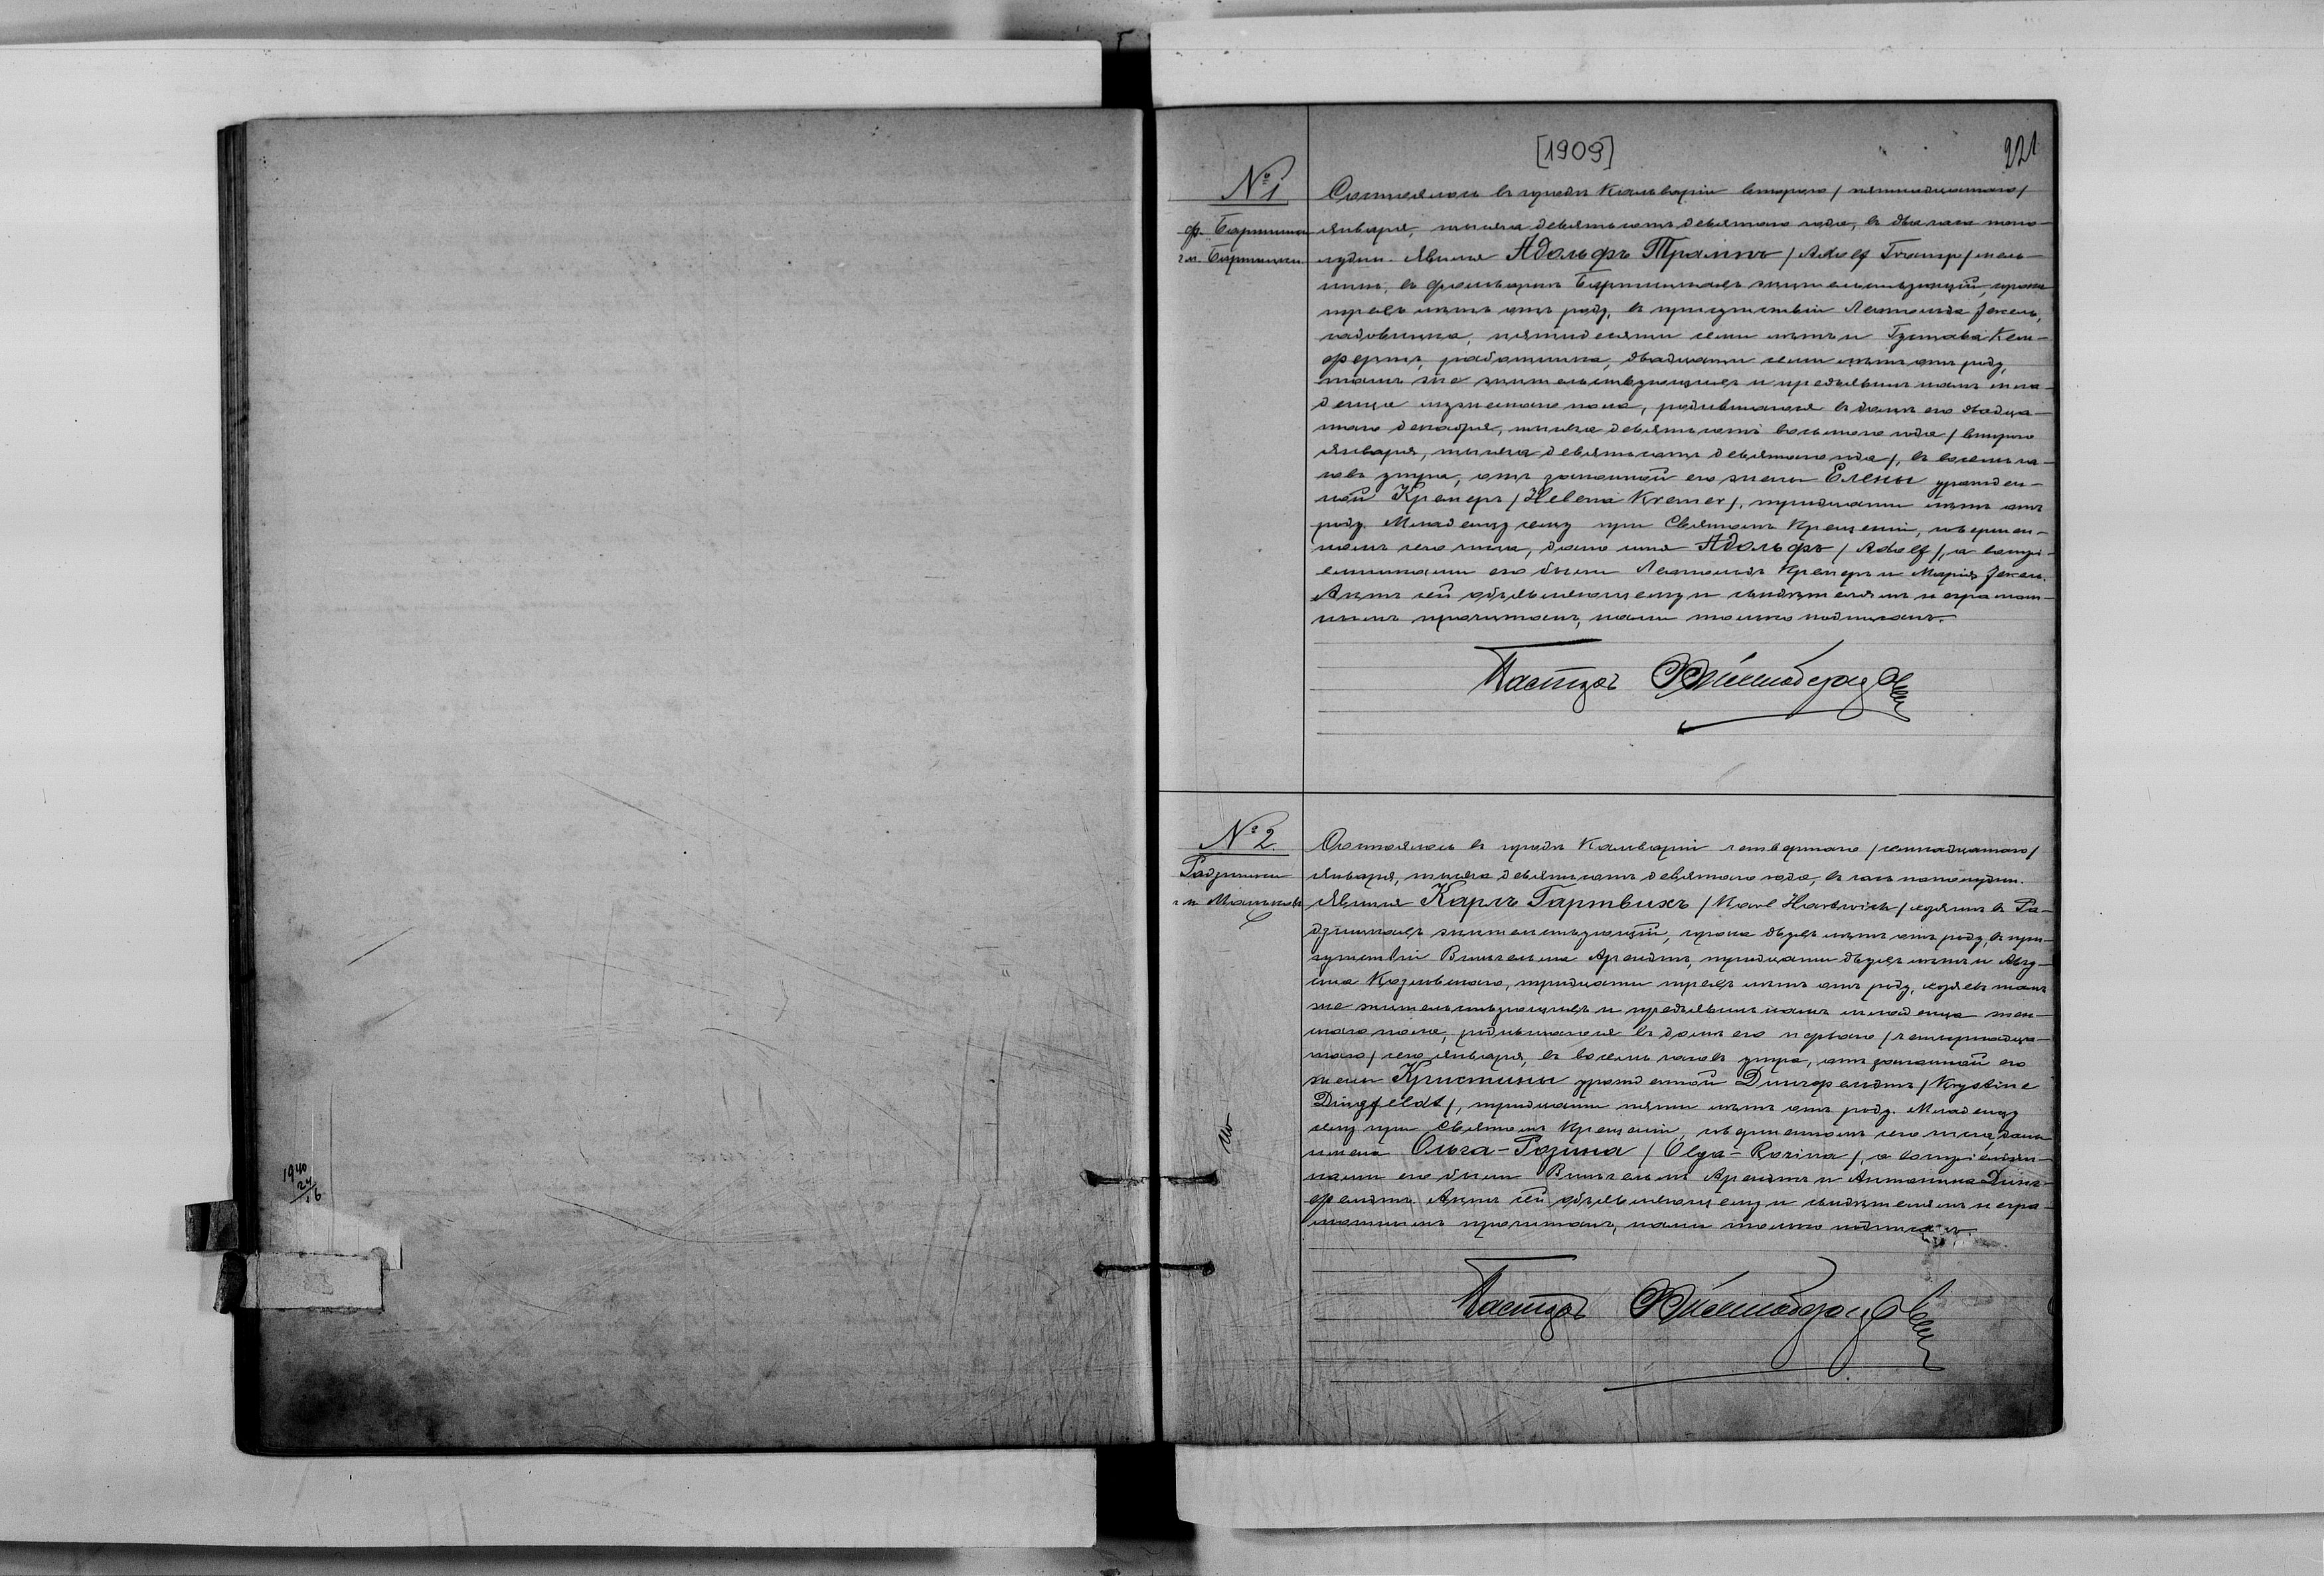 [1909]
221
№ 1
ф. Бартники
г.м. Бартники
Состоялось въ городѣ Кальваріи второго /пятнадцатаго/
января, тысяча девятьсотъ девятаго года, въ два часа попо-
лудни. Явился Адольфъ Трампъ /Adolf Tramp/ мель-
никъ, въ фольваркѣ Бартникахъ жительствующій, сорока
трехъ лѣтъ отъ роду, въ присутствіи Леопольда
садовника, пятидесяти семи лѣтъ и Густава Кем-
фертъ, работника, двадцати семи лѣтъ отъ роду,
тамъ же жительствующихъ и предъявилъ намъ мла-
денца мужескаго пола, родившагося въ домѣ его двадца-
таго декабря, тысяча девятьсотъ восьмого года /второго
января, тысяча девятьсотъ девятаго года/, въ восемь ча-
совъ утра, отъ законной его жены Елены урожден-
ной Кремеръ /Helena Kremer/, тридцати лѣтъ отъ
роду. Младенцу сему при Святомъ Крещеніи, совершен-
номъ сего числа, дано имя Адольфъ /Adolf/, а воспрі-
емниками его были Леопольдъ Кремеръ и Марія
Актъ сей объявляющему и свидѣтелямъ неграмот-
нымъ прочитанъ, нами только подписанъ.
Пасторъ
№ 2.
Радзишки
г.м.
Состоялось въ городѣ Кальваріи четвертаго /семнадцатаго/
января, тысяча девятьсотъ девятаго года, въ часъ пополудни.
Явился Карлъ Гартвихъ /Karl Hartwich/ хозяинъ въ Ра-
дзишкахъ жительствующій, сорока двухъ лѣтъ отъ роду, въ при-
сутствіи Вильгельма Арендтъ, тридцати двухъ лѣтъ и Авгу-
ста Козловскаго, тридцати трехъ лѣтъ отъ роду, хозяевъ тамъ
же жительствующихъ и предъявилъ намъ младенца жен-
скаго пола, родившагося въ домѣ его перваго /четырнадца-
таго/ сего января, въ восемь часовъ утра, отъ законной его
жены Кристины урожденной Дингфельдтъ /Krystine
Dingfeldt/, тридцати пяти лѣтъ отъ роду. Младенцу
сему при Святомъ Крещеніи, совершенномъ сего числа, даны
имена Ольга-Розина /Olga-Rozina/, а воспріемни-
ками его были Вильгельмъ Арендтъ и Антонина Динг-
фельдтъ. Актъ сей объявляющему и свидѣтелямъ негра-
мотнымъ прочитанъ, нами только подписанъ.
Пасторъ
1940
24
16